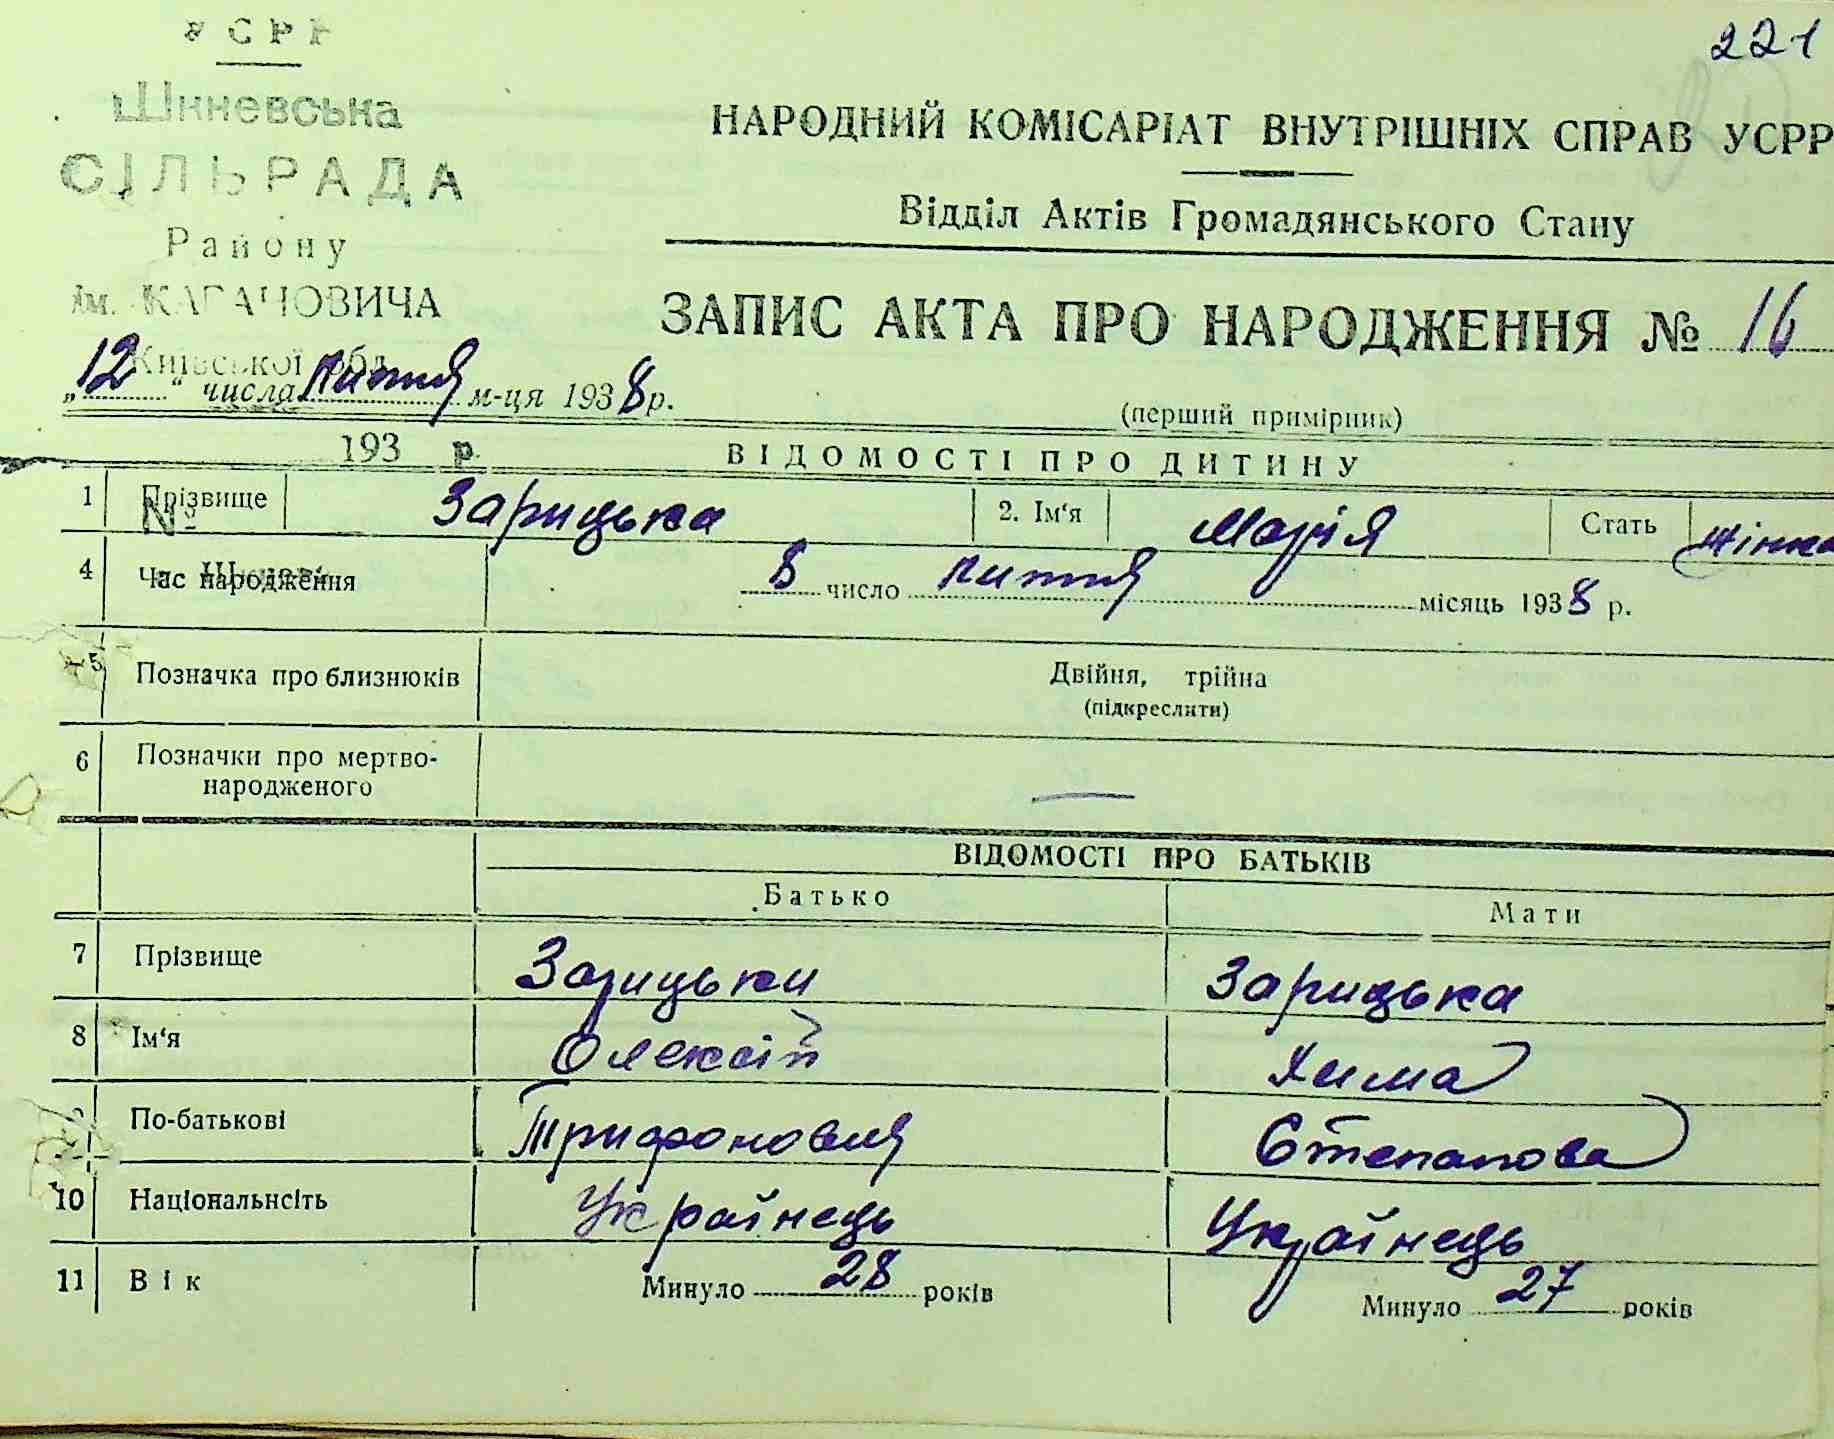 УСРР
221
Шкневська
СІЛЬРАДА
Району
Ім. КАГАНОВИЧА
Київської обл.
НАРОДНИЙ КОМІСАРІАТ ВНУТРІШНІХ СПРАВ УСРР
Відділ Актів Громадянського Стану
ЗАПИС АКТА ПРО НАРОДЖЕННЯ № 16
„12“ числа лютня м-ця 1938 р.
(перший примірник)
193 р.
№
ВІДОМОСТІ ПРО ДИТИНУ
1 Прізвище Зарицька 2. Ім‘я Марія Стать жінка
4 Час народження 8 число лютня місяць 1938 р.
5 Позначка про близнюків Двійня, трійна
(підкреслити)
6 Позначки про мертво-
народженого —
ВІДОМОСТІ ПРО БАТЬКІВ
Батько Мати
7 Прізвище Зарицьки Зарицька
8 Ім‘я Олексій Хима
9 По-батькові Трифонович Степанова
10 Національнсіть Українець Українець
11 Вік Минуло 28 років Минуло 27 років